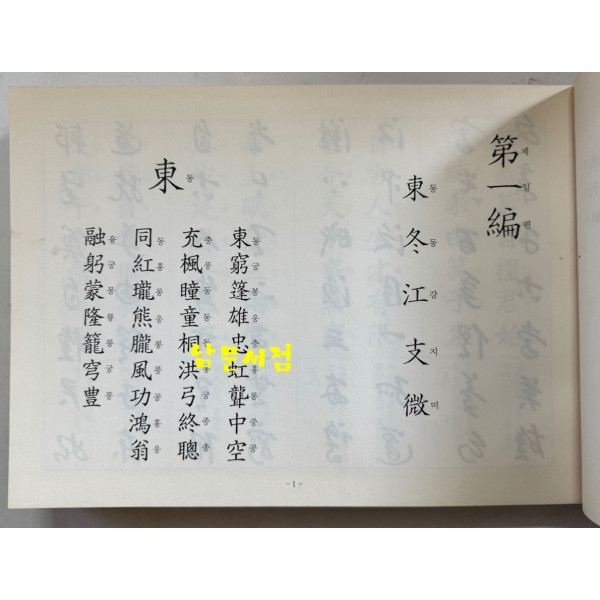 第一編
제일편
東冬江支微
동동강지미
東
동
東窮篷雄忠虹聾中空
동궁봉웅충홍롱중공
充楓瞳童桐洪弓終聰
충풍동동동홍궁종총
同紅瓏熊朧風功鴻翁
동홍롱웅롱풍공홍옹
融躬蒙隆籠穹豊
융궁몽륭롱궁풍
남문서점
-1-